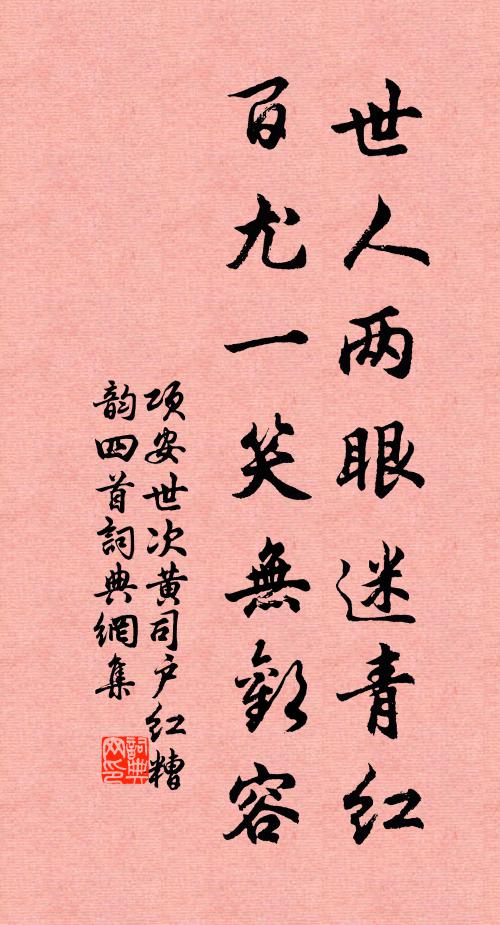 世人两眼迷青红
百尤一笑無歡容
项安世次黄司户红糟
韵四首詞典網集
詞典网印